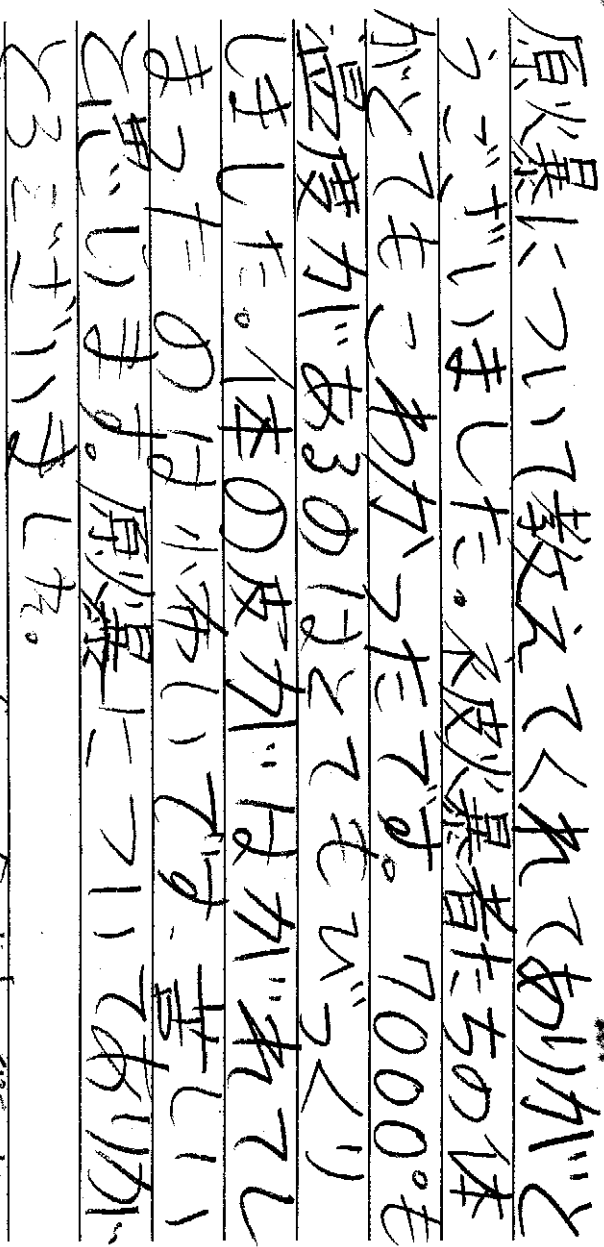 原爆について教えてくれてありがと
うございました。被爆者たちの体
がとてもこわかったです。7000°も
温度があるのはとてもびっくり
しました。体の皮がはがれてし
まったのは怖いです。苦しい
と思います。原爆についてありが
とうございました。